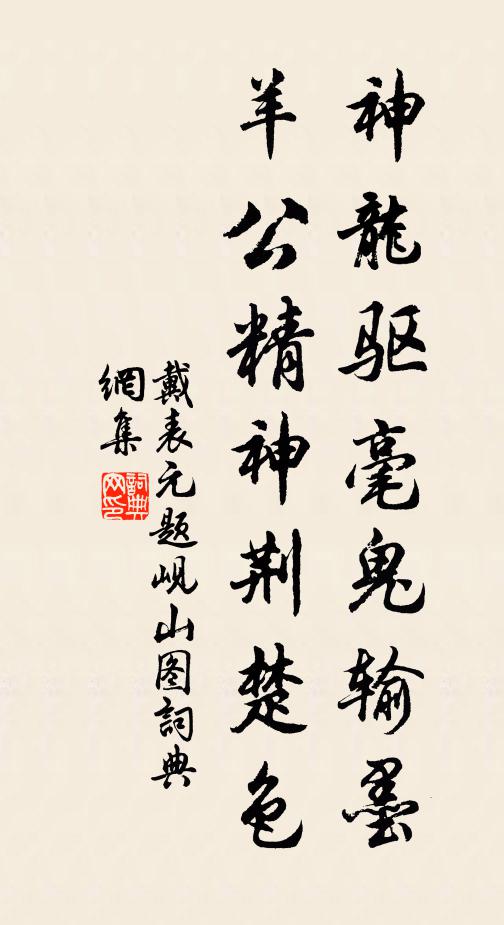 神龍驱毫鬼输墨
羊公精神荆楚色
戴表元题岘山图詞典
網集
詞典
网印